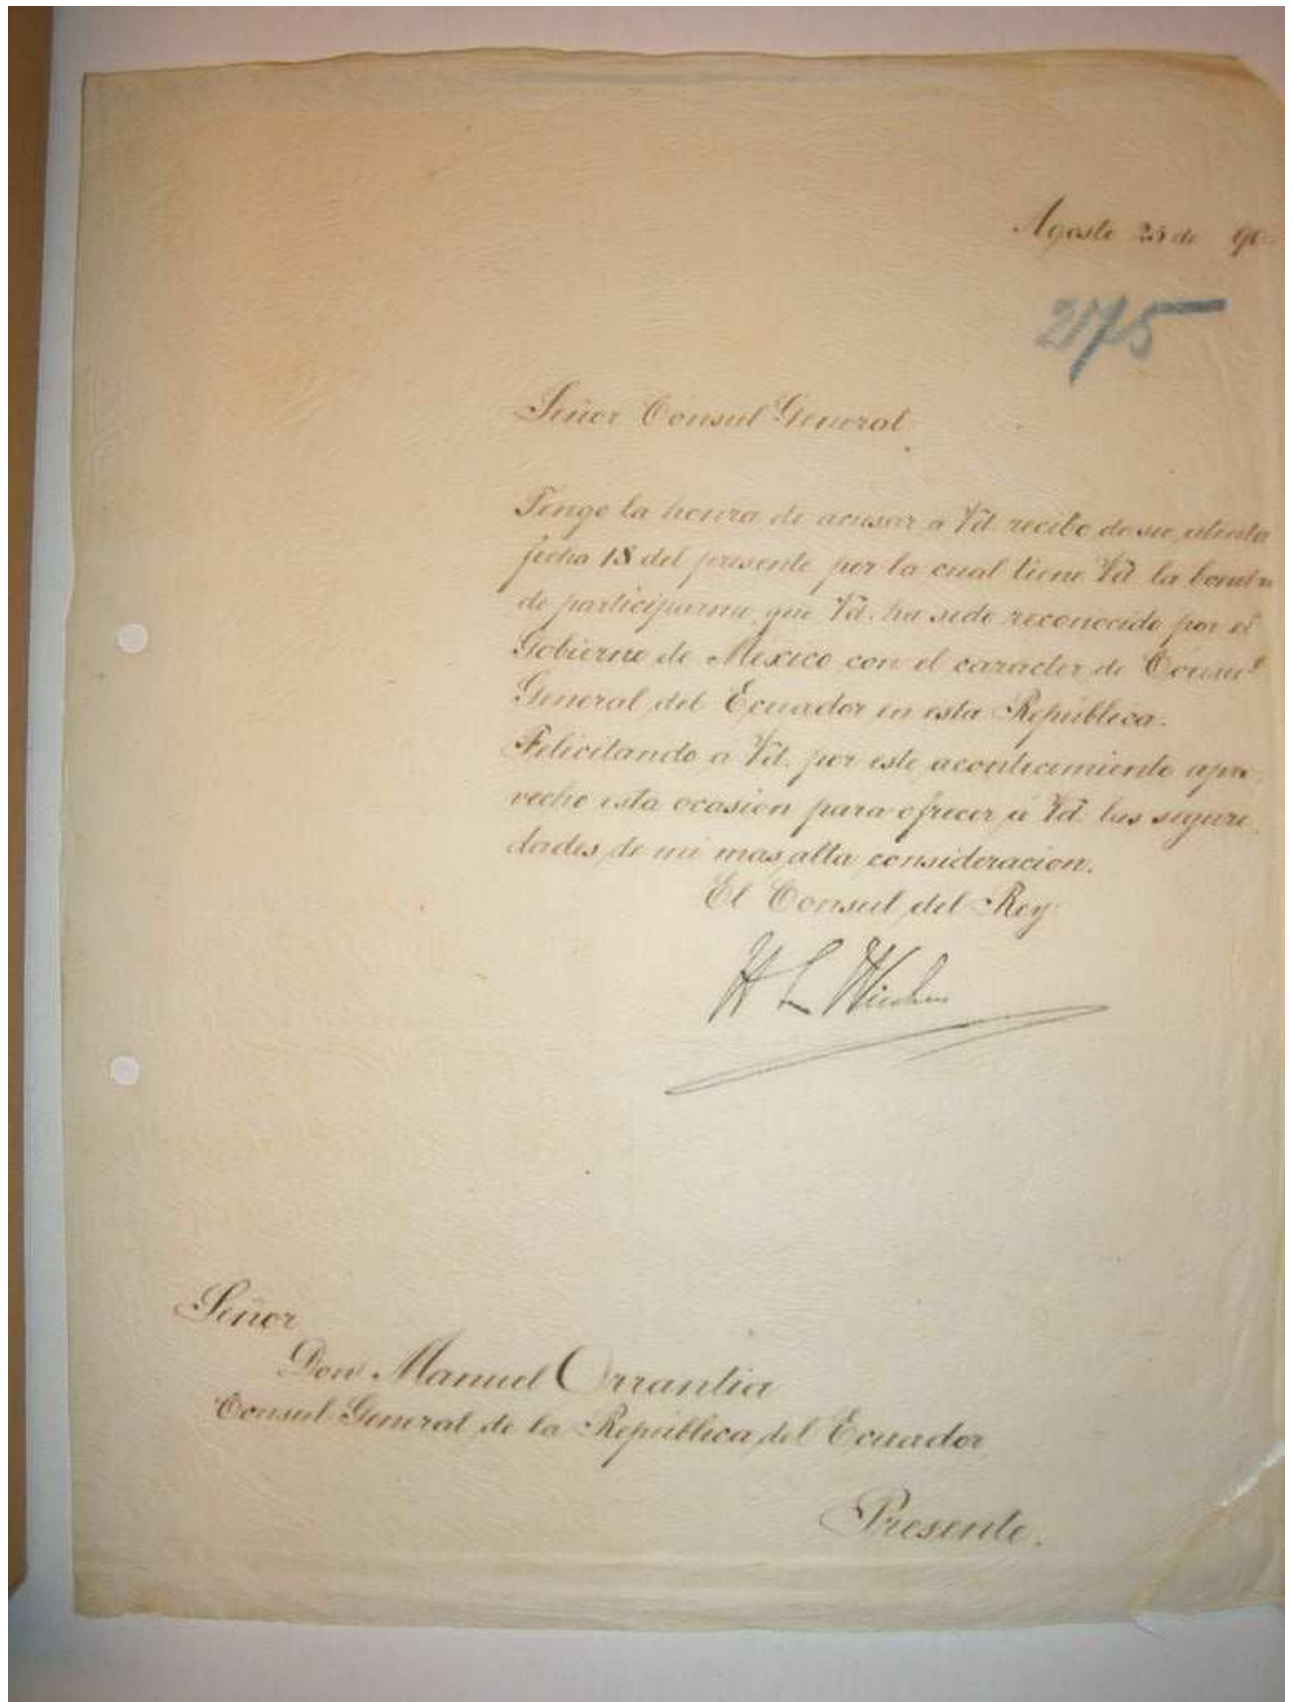 Agosto 25 de
2175
Señor Consul General.
Tengo la honra de acusar a Vd. recibo de su atenta
fecha 18 del presente por la cual tiene Vd la
de participarme que Vd. ha sido reconocido por el
Gobierno de Mexico con el caracter de Consul
General del Ecuador en esta República.
Felicitando a Vd. por este acontecimiento apro-
vecho esta ocasion para ofrecer á Vd. las seguri-
dades de mi mas alta consideracion.
El Consul del Rey:
H L
Señor
Don Manuel Orrantia
Consul General de la República del Ecuador
Presente.